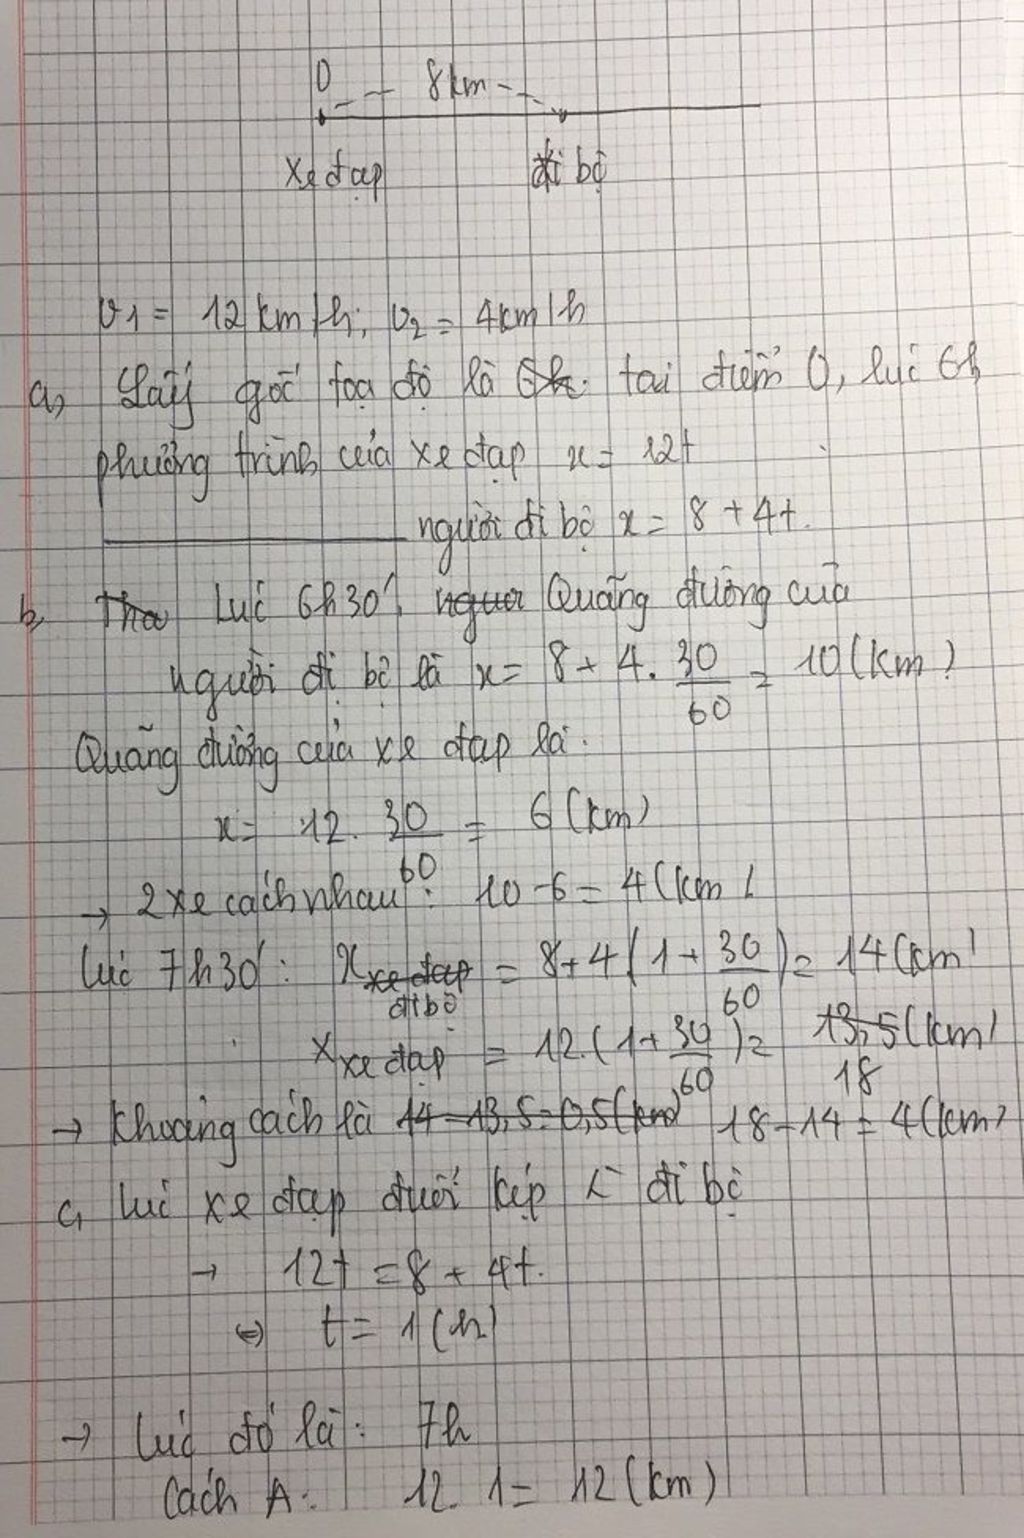 O
8km
xe đạp đi bộ
v1 = 12 km/h; v2 = 4km/h
a, Lấy gốc tọa độ là tại điểm O, lúc 6h
phương trình của xe đạp x = 12t
người đi bộ x = 8 + 4t.
b, Lúc 6h30', Quãng đường của
người đi bộ là x = 8 + 4. 30/60 = 10 (km)
Quãng đường của xe đạp là:
x = 12. 30/60 = 6 (km)
→ 2 xe cách nhau: 10 - 6 = 4 (km)
Lúc 7h30': x đi bộ = 8 + 4 (1 + 30/60) = 14 (km)
x xe đạp = 12. (1 + 30/60) = 13,5 (km)
18
→ Khoảng cách là 14 - 13,5 = 0,5 (km) 18 - 14 = 4 (km)
c, lúc xe đạp đuổi kịp đi bộ
→ 12t = 8 + 4t.
⇔ t = 1 (h)
→ Lúc đó là: 7h
Cách A: 12. 1 = 12 (km)